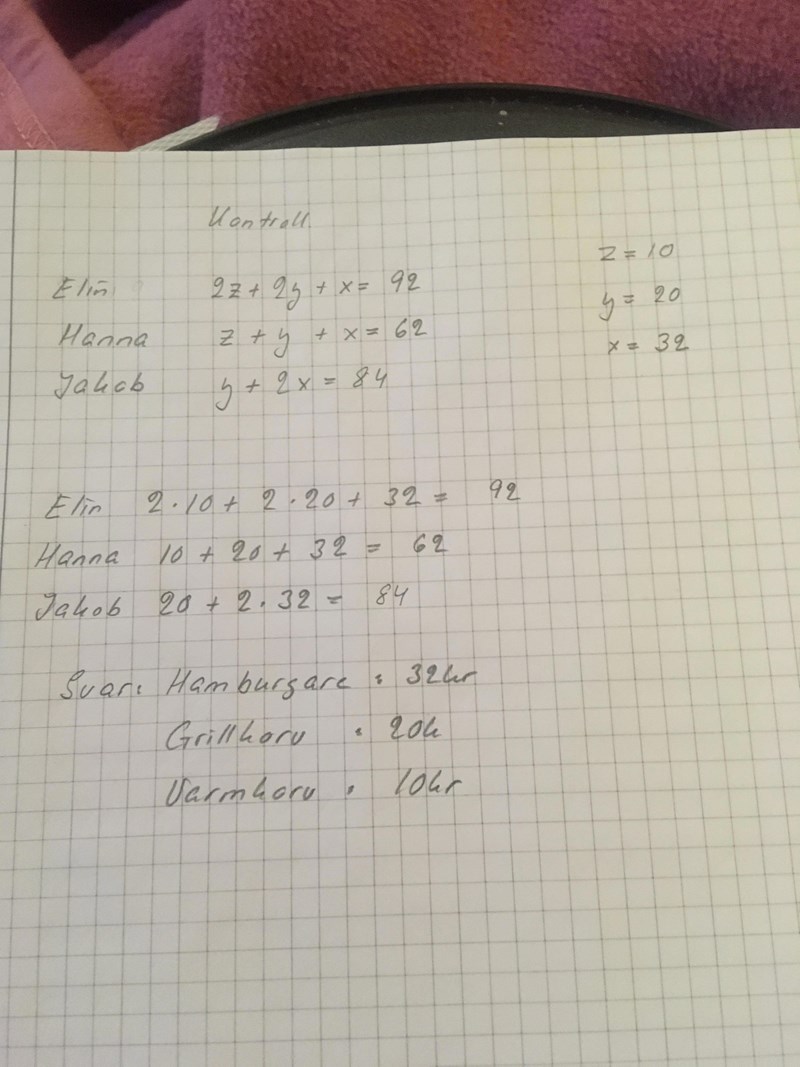 Kontroll.
Elin 2z + 2y + x = 92
Hanna z + y + x = 62
Jakob y + 2x = 84
z = 10
y = 20
x = 32
Elin 2·10 + 2·20 + 32 = 92
Hanna 10 + 20 + 32 = 62
Jakob 20 + 2·32 = 84
Svar: Hamburgare : 32kr
Grillkorv : 20k
Varmkorv : 10kr